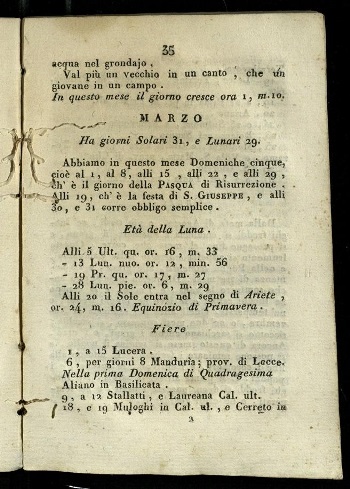 35
acqua nel grondajo.
Val più un vecchio in un canto, che un
giovane in un campo.
In questo mese il giorno cresce ora 1, m.10.
MARZO
Ha giorni Solari 31, e Lunari 29.
Abbiamo in questo mese Domeniche cinque,
cioè al 1, al 8, alli 15, alli 22, e alli 29,
ch' è il giorno della PASQUA di Risurrezione.
Alli 19, ch' è la festa di S. GIUSEPPE, e alli
30, e 31 corre obbligo semplice.
Età della Luna.
Alli 5 Ult. qu. or. 16, m. 33
- 13 Lun. nuo. or. 12, min. 56
- 19 Pr. qu. or. 17, m. 27
- 28 Lun. pie. or. 6, m. 29
Alli 20 il Sole entra nel segno di Ariete,
or. 24, m. 16. Equinozio di Primavera.
Fiere
1, a 15 Lucera.
6, per giorni 8 Manduria; prov. di Lecce.
Nella prima Domenica di Quadragesima
Aliano in Basilicata.
9, a 12 Stallatti, e Laureana Cal. ult.
18, e 19 Muloghi in Cal. ul., e Cerreto in
2